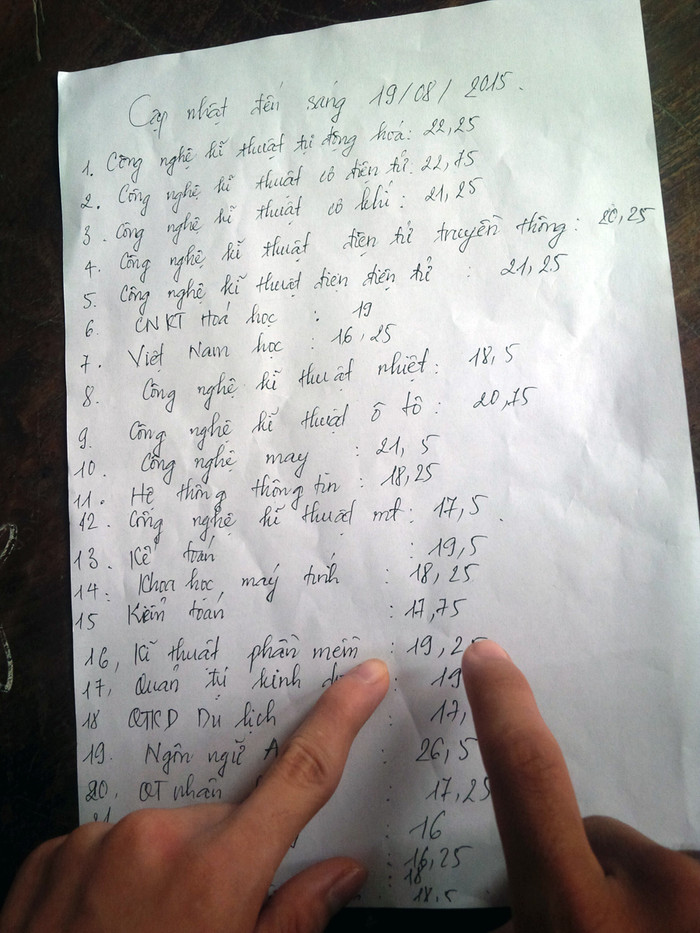 Cập nhật đến sáng 19/08/2015.
1. Công nghệ kĩ thuật tự động hoá: 22,25
2. Công nghệ kĩ thuật cơ điện tử: 22,75
3. Công nghệ kĩ thuật cơ khí: 21,25
4. Công nghệ kĩ thuật điện tử truyền thông: 20,25
5. Công nghệ kĩ thuật điện điện tử : 21,25
6. CNKT Hoá học : 19
7. Việt Nam học : 16,25
8. Công nghệ kĩ thuật nhiệt: 18,5
9. Công nghệ kĩ thuật ô tô : 20,75
10. Công nghệ may : 21,5
11. Hệ thống thông tin : 18,25
12. Công nghệ kĩ thuật mt: 17,5.
13. Kế toán : 19,5
14. Khoa học máy tính : 18,25
15 Kiểm toán : 17,75
16, Kĩ thuật phần mềm : 19,25
17, Quản trị kinh : 19
18 QTKD Du lịch : 17,
19. Ngôn ngữ A : 26,5
20. QT nhân : 17,25
21 : 16
: 16,25
: 18
: 18,5